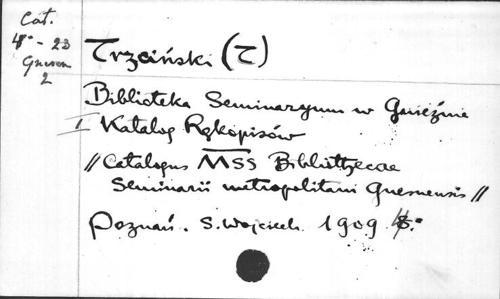 Cat.
4° - 23
Gnesen
2
Trzciński (T)
Biblioteka Seminaryum w Gnieźnie
I Katalog Rękopisów
// Catalogus MSS Bibliothecae
Seminarii metropolitani Gnesnensis //
Poznań. S. Wojciech 1909